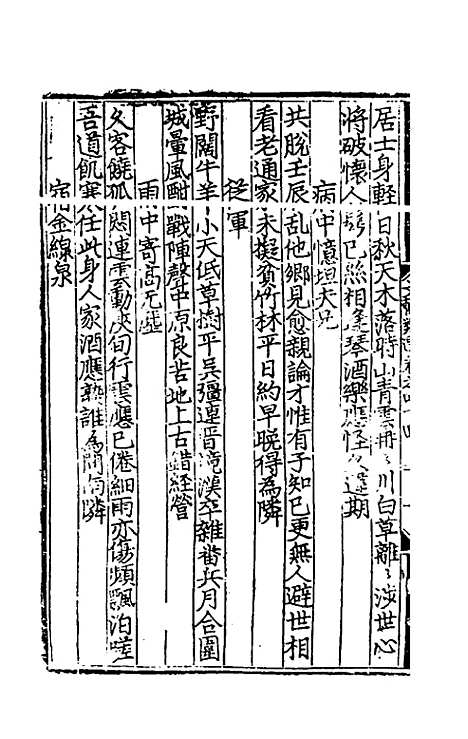 居士身輕日秋天木落時山青雲冉ヽ川白草離ヽ涉世心
將破懷人鬂已絲相逢琴酒樂應怪久違期
病中憶坦夫兄
共脫壬辰亂他鄉見愈親論才惟有子知已更無人避世相
看老通家未擬貧竹林平日約早晚得為隣
從軍
野闊牛羊小天低草樹平吳彊連晉境漢卒雜番兵月合圍
城暈風酣戰陣聲中原良苦地上古錯經營
雨中寄高元
久客饒孤悶連雲動浹旬行雲應已倦細雨亦傷頻飄泊嗟
吾道飢寒任此身人家酒應熟誰為問南隣
宿金線泉